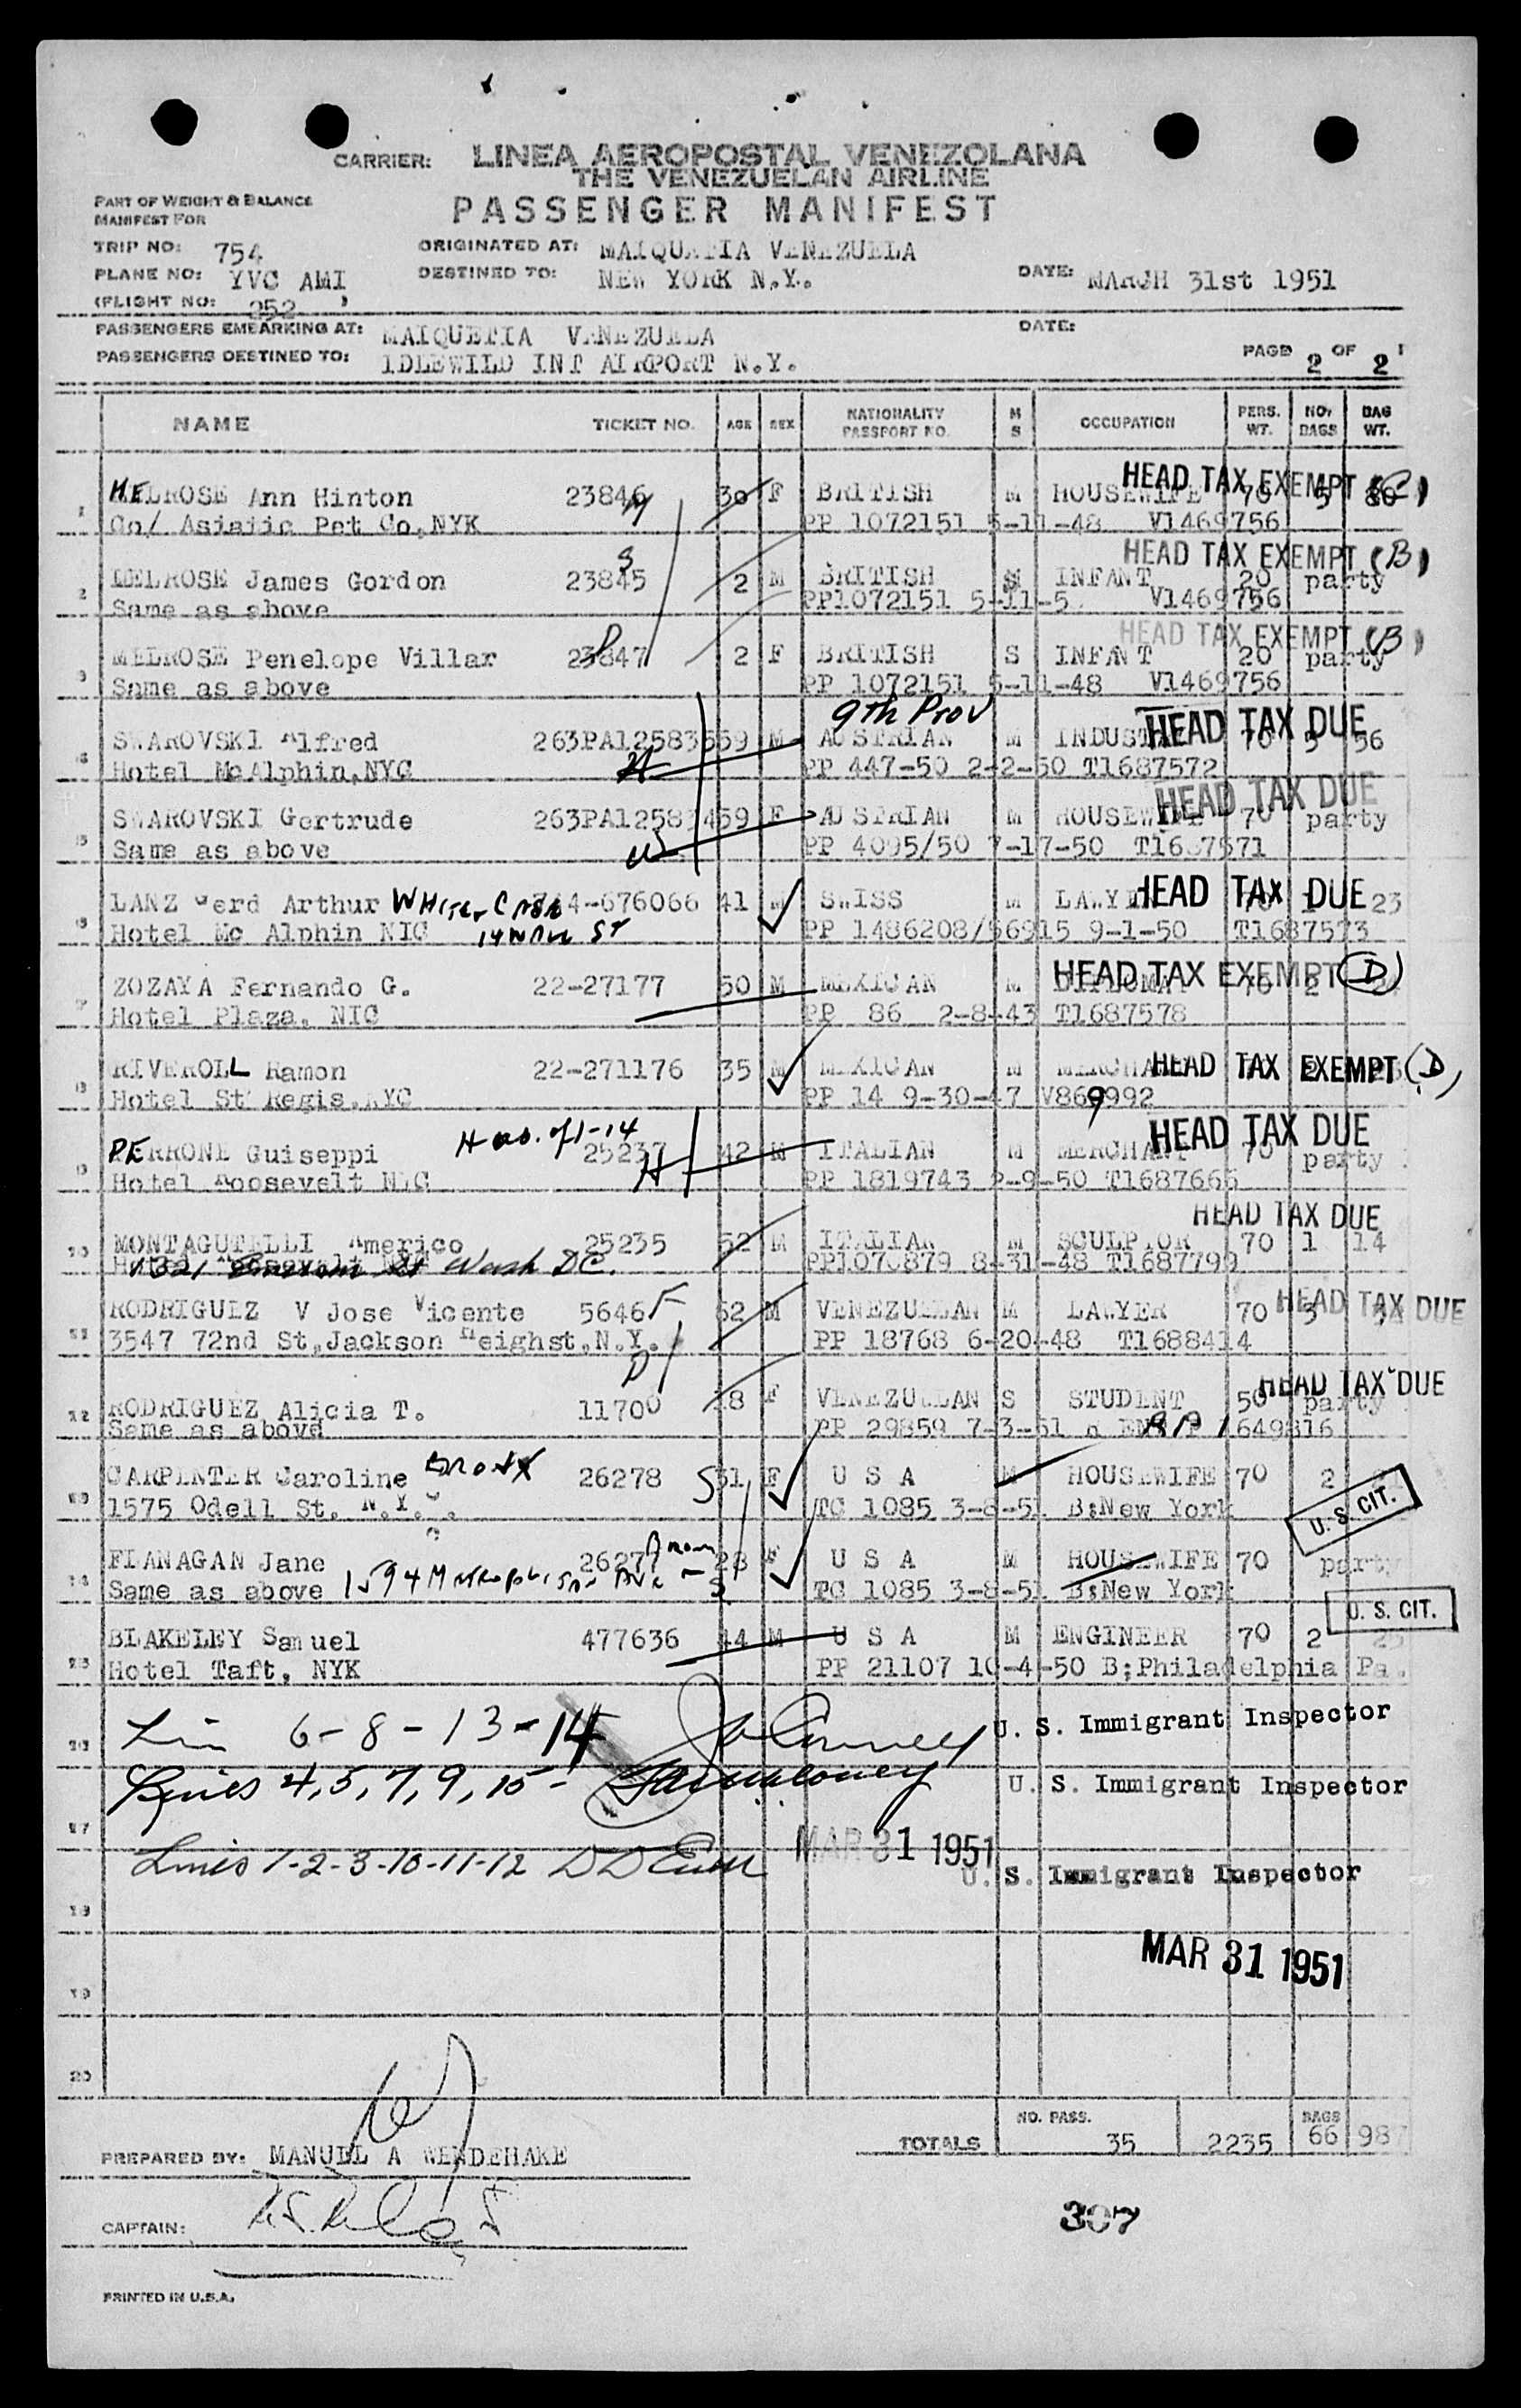 CARRIER: LINEA AEROPOSTAL VENEZOLANA
THE VENEZUELAN AIRLINE
PART OF WEIGHT & BALANCE
MANIFEST FOR
PASSENGER MANIFEST
TRIP NO: 754 ORIGINATED AT: MAIQUETIA VENEZUELA
PLANE NO: YVC AMI DESTINED TO: NEW YORK N.Y. DATE: MARCH 31st 1951
(FLIGHT NO: 252 )
PASSENGERS EMBARKING AT: MAIQUETIA VENEZUELA DATE:
PASSENGERS DESTINED TO: IDLEWILD INT AIRPORT N.Y. PAGE 2 OF 2
NAME TICKET NO. AGE SEX NATIONALITY PASSPORT NO. M S OCCUPATION PERS. WT. NO. BAGS BAG WT.
HEAD TAX EXEMPT (C)
1 MELROSE Ann Hinton 23846 30 F BRITISH M HOUSEWIFE 70 5 80
Co/ Asiatic Pet Co, NYK PP 1072151 5-11-48 V1469756
HEAD TAX EXEMPT (B)
2 MELROSE James Gordon 23845 2 M BRITISH S INFANT 20 party
Same as above PP1072151 5-11-5 V1469756
HEAD TAX EXEMPT (B)
3 MELROSE Penelope Villar 23847 2 F BRITISH S INFANT 20 party
Same as above PP 1072151 5-11-48 V1469756
9th Prov
4 SWAROVSKI Alfred 263PA125835 59 M AUSTRIAN M INDUST HEAD TAX DUE 70 5 56
Hotel McAlphin, NYC PP 447-50 2-2-50 T1687572
HEAD TAX DUE
5 SWAROVSKI Gertrude 263PA125834 59 F AUSTRIAN M HOUSEWIFE 70 party
Same as above PP 4095/50 7-17-50 T1687571
6 LANZ Werd Arthur 744-676066 41 M SWISS M LAWYER HEAD TAX DUE 23
Hotel Mc Alphin NYC 14 Wall St PP 1486208/56915 9-1-50 T1687573
7 ZOZAYA Fernando G. 22-27177 50 M MEXICAN M DIPLOMAT HEAD TAX EXEMPT (D) 70 2
Hotel Plaza, NYC PP 86 2-8-43 T1687578
8 RIVEROLL Ramon 22-271176 35 M MEXICAN M MERCHANT HEAD TAX EXEMPT (D)
Hotel St Regis, NYC PP 14 9-30-47 V869992
9 PERRONE Guiseppi 25237 42 M ITALIAN M MERCHANT HEAD TAX DUE 70 party
Hotel Roosevelt NYC PP 1819743 2-9-50 T1687665
HEAD TAX DUE
10 MONTAGUTELLI Americo 25235 52 M ITALIAN M SCULPTOR 70 1 14
1321 Emerson St Wash DC. PP1070879 8-31-48 T1687799
11 RODRIGUEZ V Jose Vicente 5646 52 M VENEZUELAN M LAWYER 70 3 HEAD TAX DUE
3547 72nd St, Jackson Heighst, N.Y. PP 18768 6-20-48 T1688414
HEAD TAX DUE
12 RODRIGUEZ Alicia T. 11700 18 F VENEZUELAN S STUDENT 50 party
Same as above PP 29859 7-3-51 R/P 1649816
13 CARPENTER Caroline BRONX 26278 S 31 F U S A M HOUSEWIFE 70 2
1575 Odell St. N.Y. TC 1085 3-8-51 B;New York U. S. CIT.
14 FLANAGAN Jane 26277 Bronx 28 F U S A M HOUSEWIFE 70 party
Same as above 1594 Metropolitan Ave - S TC 1085 3-8-51 B;New York
U. S. CIT.
15 BLAKELEY Samuel 477636 44 M U S A M ENGINEER 70 2 25
Hotel Taft, NYK PP 21107 10-4-50 B;Philadelphia Pa.
16 Lin 6-8-13-14 U. S. Immigrant Inspector
Lines 4, 5, 7, 9, 15- U. S. Immigrant Inspector
17 MAR 31 1951
Lines 1-2-3-10-11-12 U. S. Immigrant Inspector
19
MAR 31 1951
19
20
TOTALS NO. PASS. 35 2235 BAGS 66 987
PREPARED BY: MANUEL A WENDEHAKE
CAPTAIN:
307
PRINTED IN U.S.A.